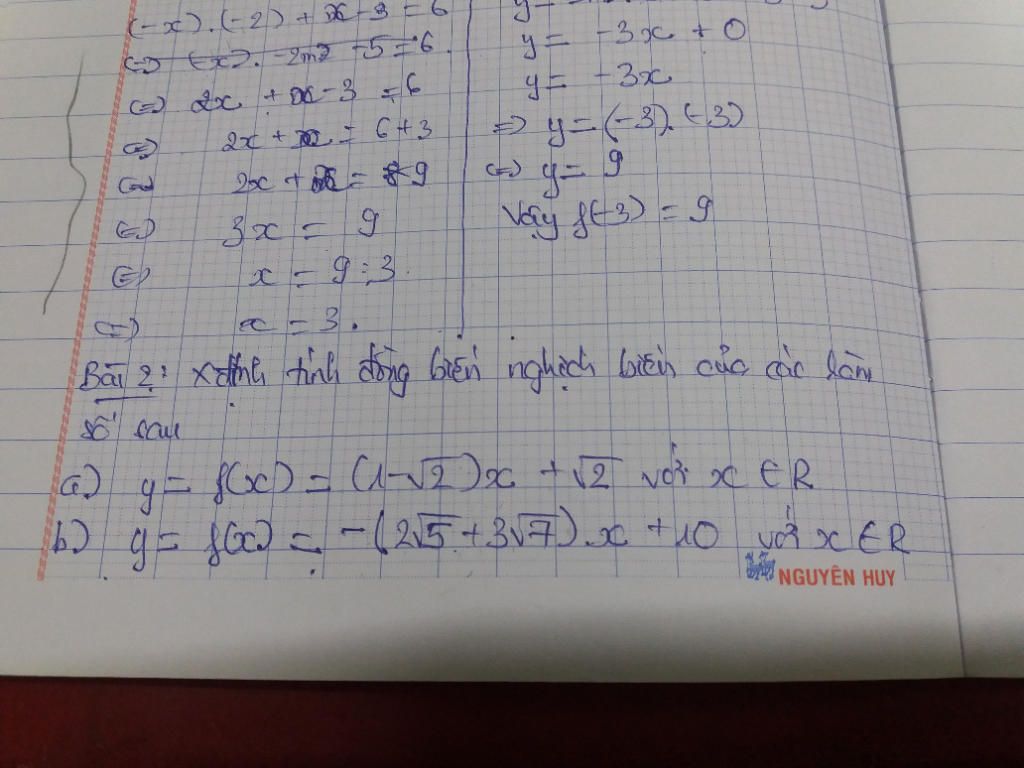 (-x).(-2) + x - 3 = 6
⇔ (-x). -5 = 6
⇔ 2x + x - 3 = 6
⇔ 2x + x = 6+3
⇔ 2x + x = 9
⇔ 3x = 9
⇔ x = 9:3
⇔ x = 3.
y = -3x + 0
y = -3x
⇒ y = (-3).(-3)
⇔ y = 9
Vậy f(-3) = 9
Bài 2: xđịnh tính đồng biến nghịch biến của các hàm
số sau
a) y = f(x) = (1-√2)x + √2 với x ∈ R
b) y = f(x) = -(2√5 + 3√7).x + 10 với x ∈ R
NGUYÊN HUY